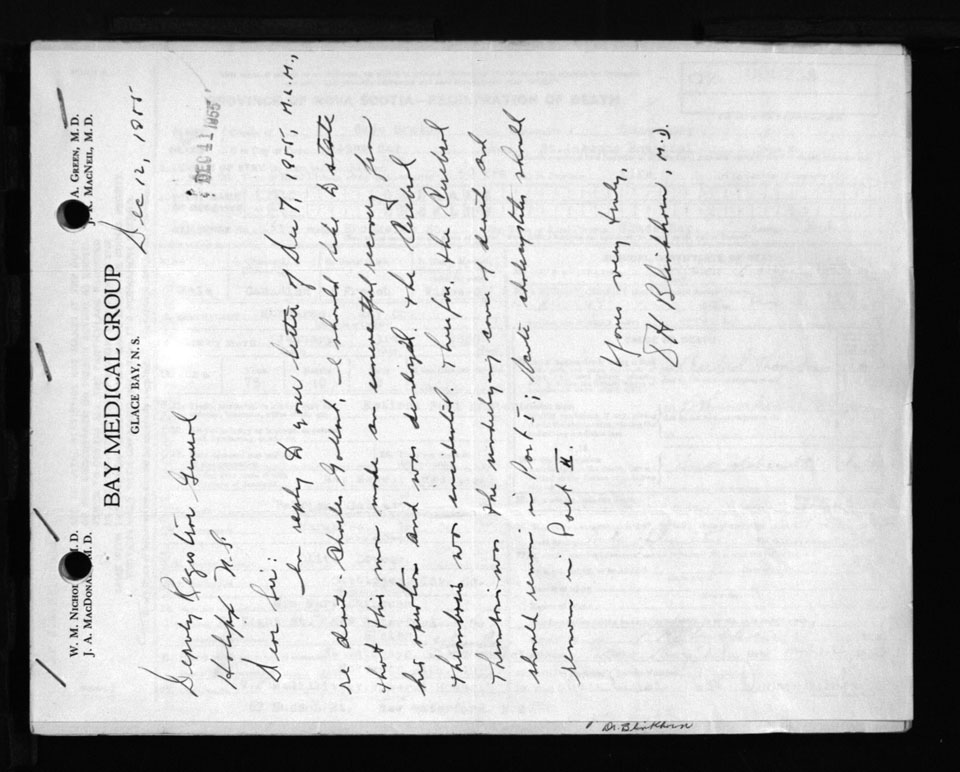 W. M. NICHO M.D.
J. A. MACDONA M.D.
A. GREEN, M.D.
J. A. MACNEIL, M.D.
BAY MEDICAL GROUP
GLACE BAY, N. S.
Dec 12, 1955
DEC 1955
Deputy Registrar General
Halifax N.S.
Dear Sir:
In reply to your letter of Dec 7, 1955,
re death Charles Gollan, I should like to state
that this man made an uneventful recovery from
his operation and was discharged. The Cerebral
thrombosis was incidental. Therefore, the Cerebral
Thrombosis was the underlying cause of death and
should remain in Part I; Acute cholecystitis should
remain in Part II.
Yours very truly,
H Blinkhorn, M.D.
Dr. Blinkhorn